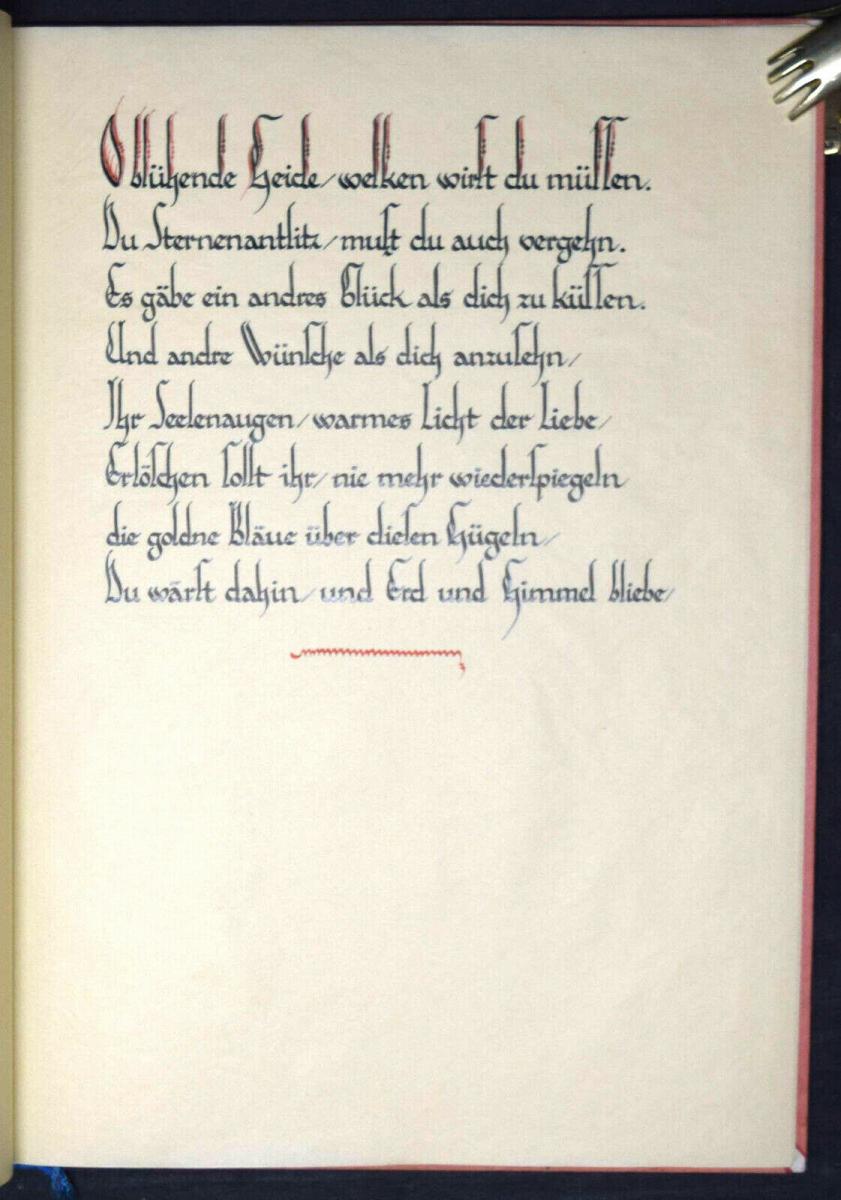 O blühende Heide/welken wirst du müssen.
Du Sternenantlitz/must du auch vergehn.
Es gäbe ein andres Glück als dich zu küssen.
Und andre Wünsche als dich anzusehn/
Ihr Seelenaugen/warmes Licht der Liebe/
Erlöschen sollt ihr/nie mehr wiederspiegeln
die goldne Bläue über diesen Hügeln/
Du wärst dahin/und Erd und Himmel bliebe/